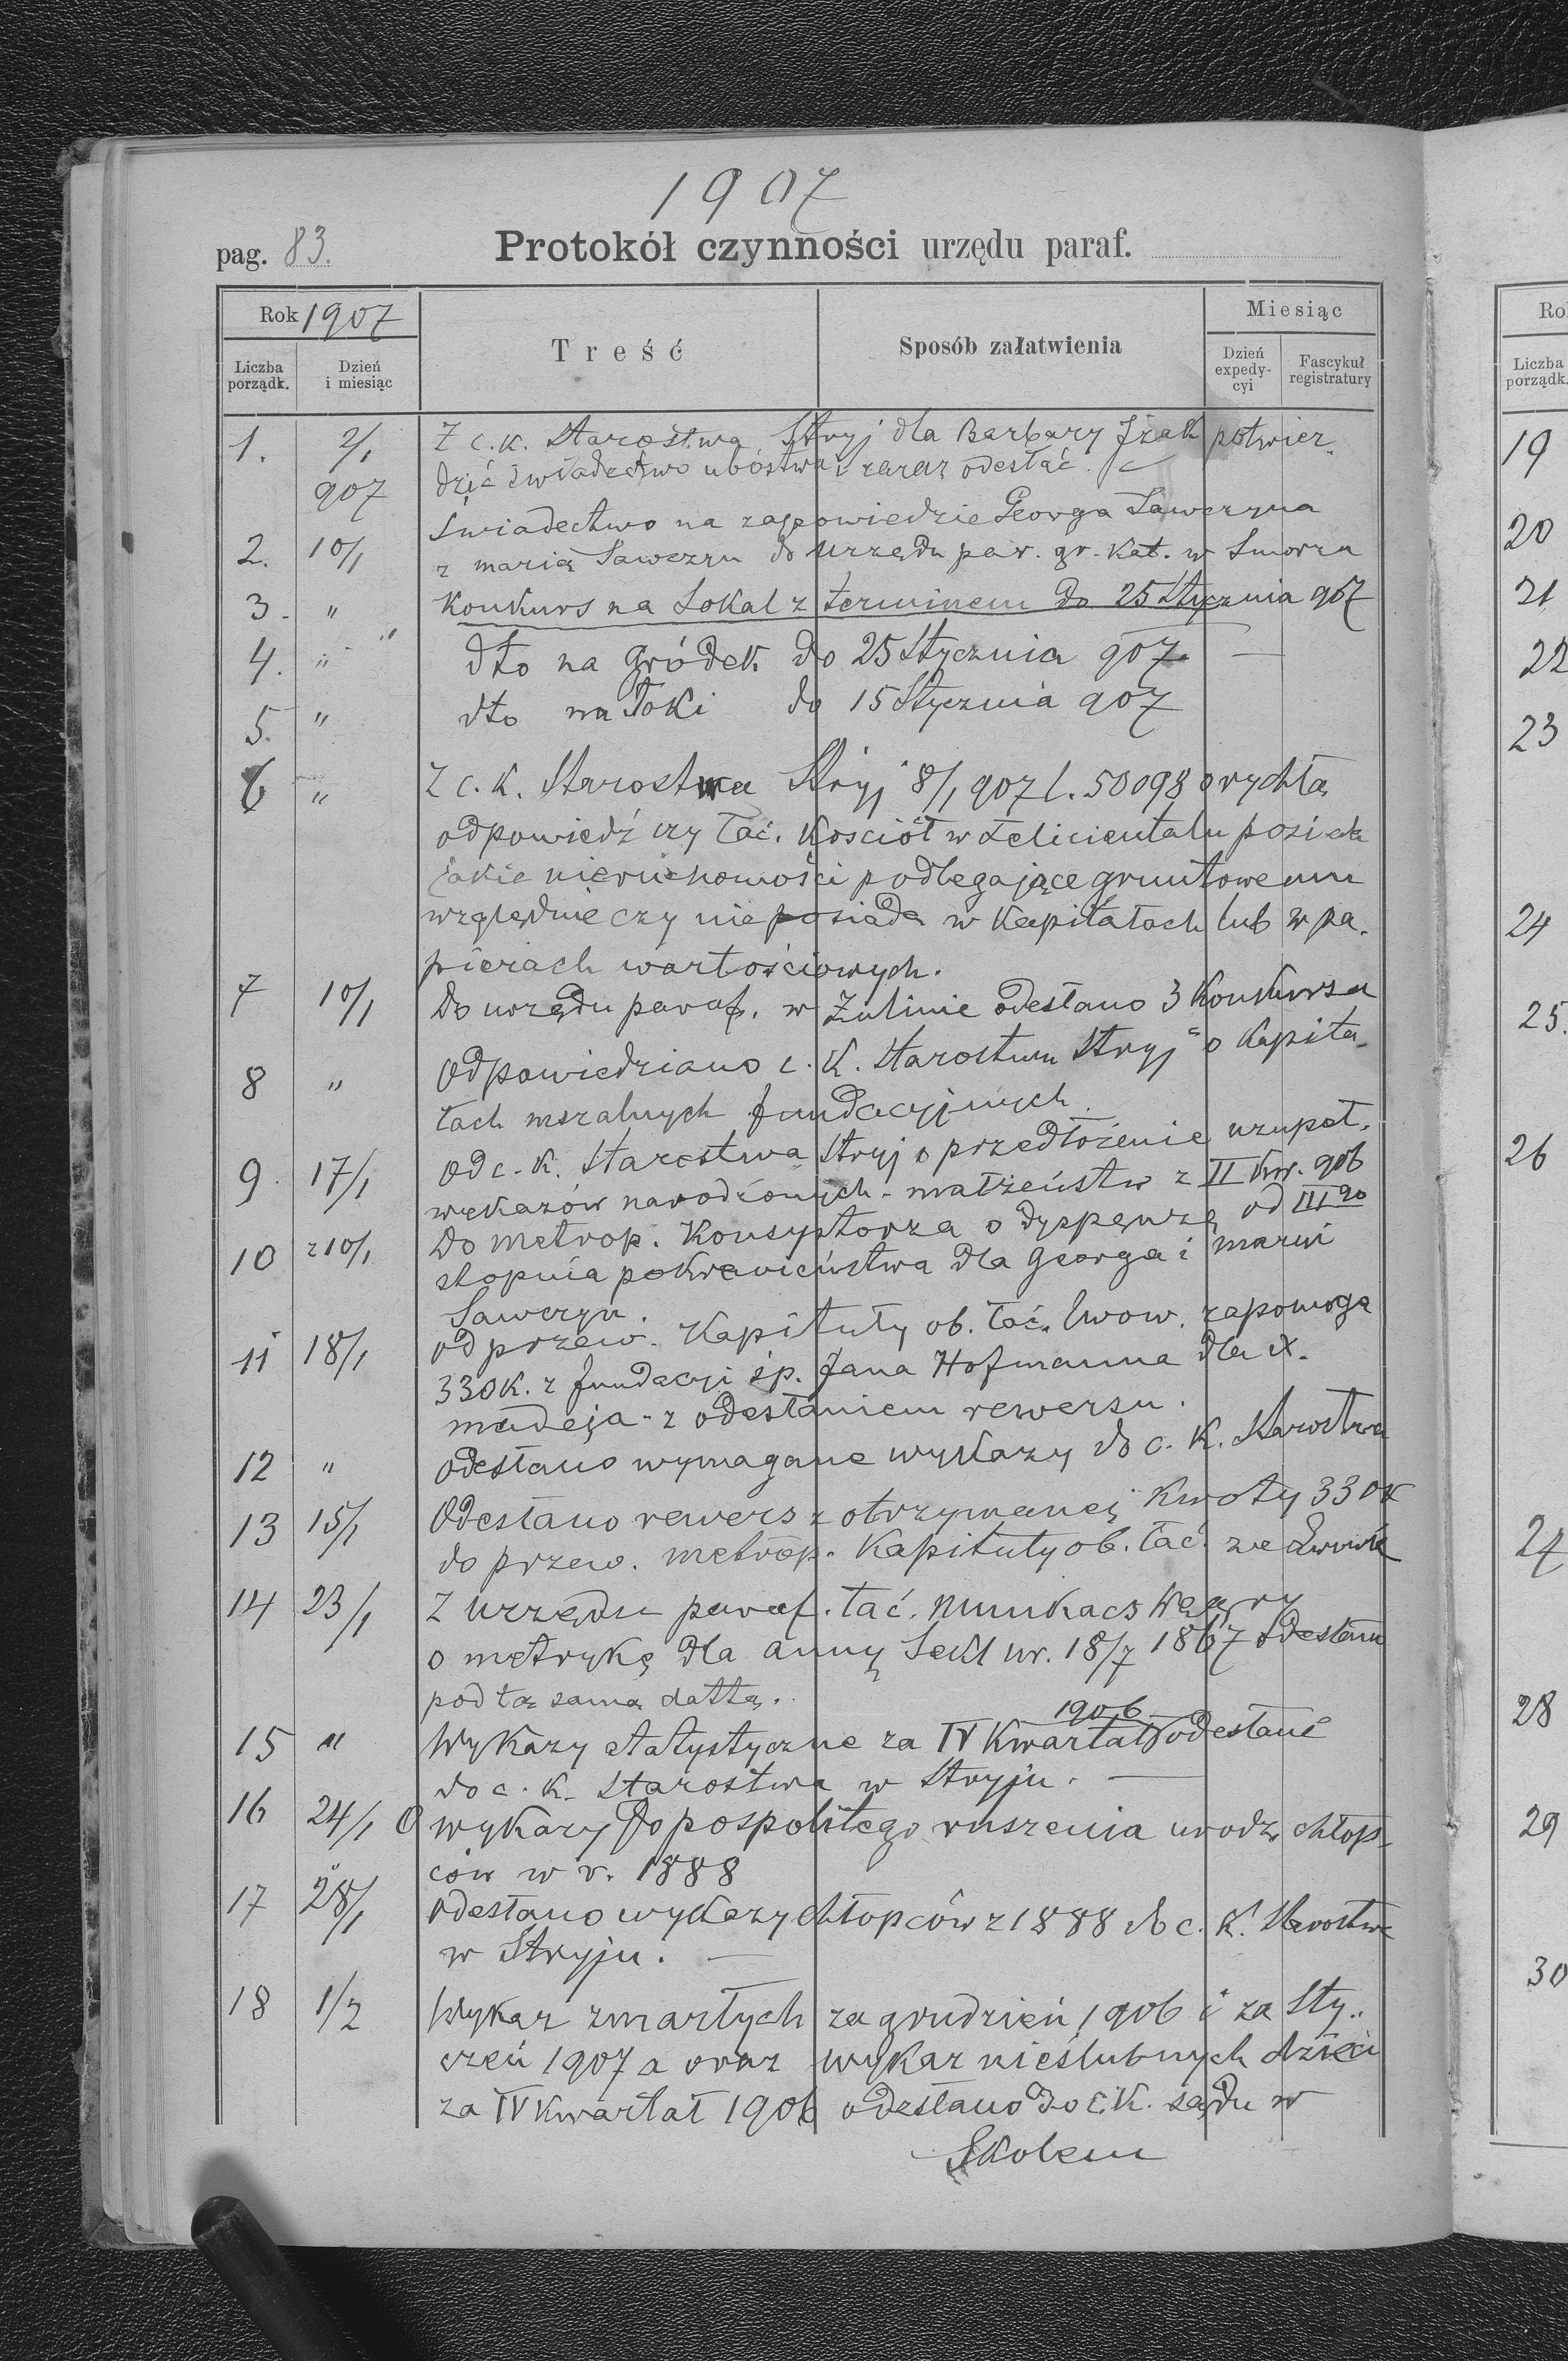 1907
pag. 83. Protokół czynności urzędu paraf.
Rok 1907 Treść Sposób załatwienia Miesiąc
Liczba porządk. Dzień i miesiąc Dzień expedycyi Fascykuł registratury
1. 2/1 Z c. k. Starostwa Stryj dla Barbary potwier
907 dzić świadectwo ubóstwa i zaraz odesłać.
Świadectwo na zapowiedzie Georga Sawczyna
2. 10/1 z marią Sawczyn do urzędu par. gr. Kat. w Smorzu
3. " Konkurs na Sokal z terminem do 25 Stycznia 907
4. " dto na gródek do 25 Stycznia 907
5. " dto na Toki do 15 Stycznia 907
6 " Z c. k. Starostwa Stryj 8/1 907 l. 50098 o rychłą
odpowiedź czy łać. Kosciół w Felicientalu posiada
jakie nieruchomości podlegające gruntowemu
względnie czy nie posiada w Kapitałach lub w pa.
pierach wartościowych.
7 10/1 Do urzędu paraf. w Żulinie odesłano 3 Konkursa
8 " Odpowiedziano c. K. Starostwu Stryj o Kapita
łach mszalnych fundacyjnych.
9 17/1 Od c. K. Starostwa Stryj o przedłożenie uzupeł.
wykazów narodzonych - małżeństw z II kw. 906
10 z 10/1 Do metrop. Konsystorza o dyspenzę od III go
stopnia pokrewieństwa dla Georga i marii
Sawczyn.
11 18/1 od przew. Kapituły ob. łać. lwow. zapomoga
330 K. z fundacyi śp. Jana Hofmanna dla X.
madeja - z odesłaniem rewersu.
12 " odesłano wymagane wykazy do c. K. Starostwa
13 15/1 Odesłano rewers z otrzymanej Kwoty 330 K
do przew. metrop. Kapituły ob. łać. we Lwowie
14 23/1 Z urzędu paraf. łać. Munkacs Węgry
o metrykę dla anny Sekl ur. 18/7 1867 odesłano
pod tą samą dattą.
1906
15 " Wykazy statystyczne za IV Kwartał odesłane
do c. K. Starostwa w Stryju.
16 24/1 O wykazy do pospolitego ruszenia urodz. chłop-
ców w r. 1888
17 28/1 odesłano wykazy chłopców z 1888 do c. K. Starostwa
w Stryju.
18 1/2 Wykaz zmarłych za grudzień 1906 i za Sty.
czeń 1907 a oraz wykaz nieślubnych dzieci
za IV kwartał 1906 odesłano do c. K. sądu w
Skolem
Ro
Liczba porządk.
19
20
21
22
23
24
25.
26
27
28
29
30